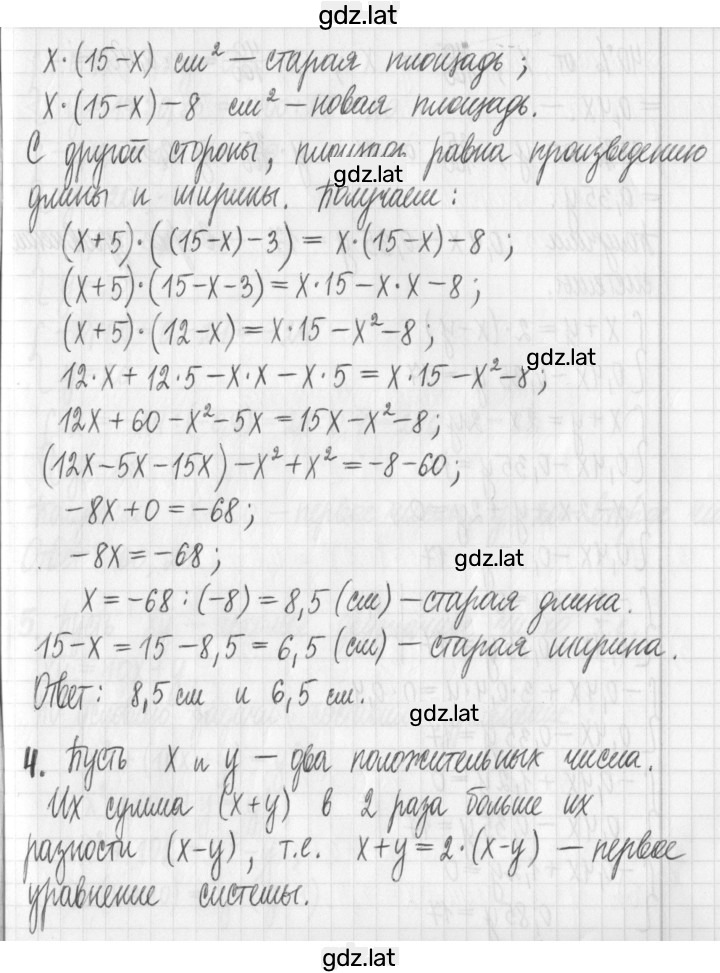 gdz.lat
x·(15-x) см² – старая площадь;
x·(15-x)-8 см² – новая площадь.
С другой стороны, площадь равна произведению
gdz.lat
длины и ширины. Получаем:
(x+5)·((15-x)-3) = x·(15-x)-8;
(x+5)·(15-x-3) = x·15-x·x-8;
(x+5)·(12-x) = x·15-x²-8;
gdz.lat
12·x+12·5-x·x-x·5 = x·15-x²-8;
12x+60-x²-5x = 15x-x²-8;
(12x-5x-15x)-x²+x² = -8-60;
-8x+0 = -68;
-8x = -68;
gdz.lat
x = -68:(-8) = 8,5 (см) – старая длина.
15-x = 15-8,5 = 6,5 (см) – старая ширина.
Ответ: 8,5 см и 6,5 см.
gdz.lat
4. Пусть x и y – два положительных числа.
Их сумма (x+y) в 2 раза больше их
разности (x-y), т.е. x+y=2·(x-y) – первое
уравнение системы.
gdz.lat